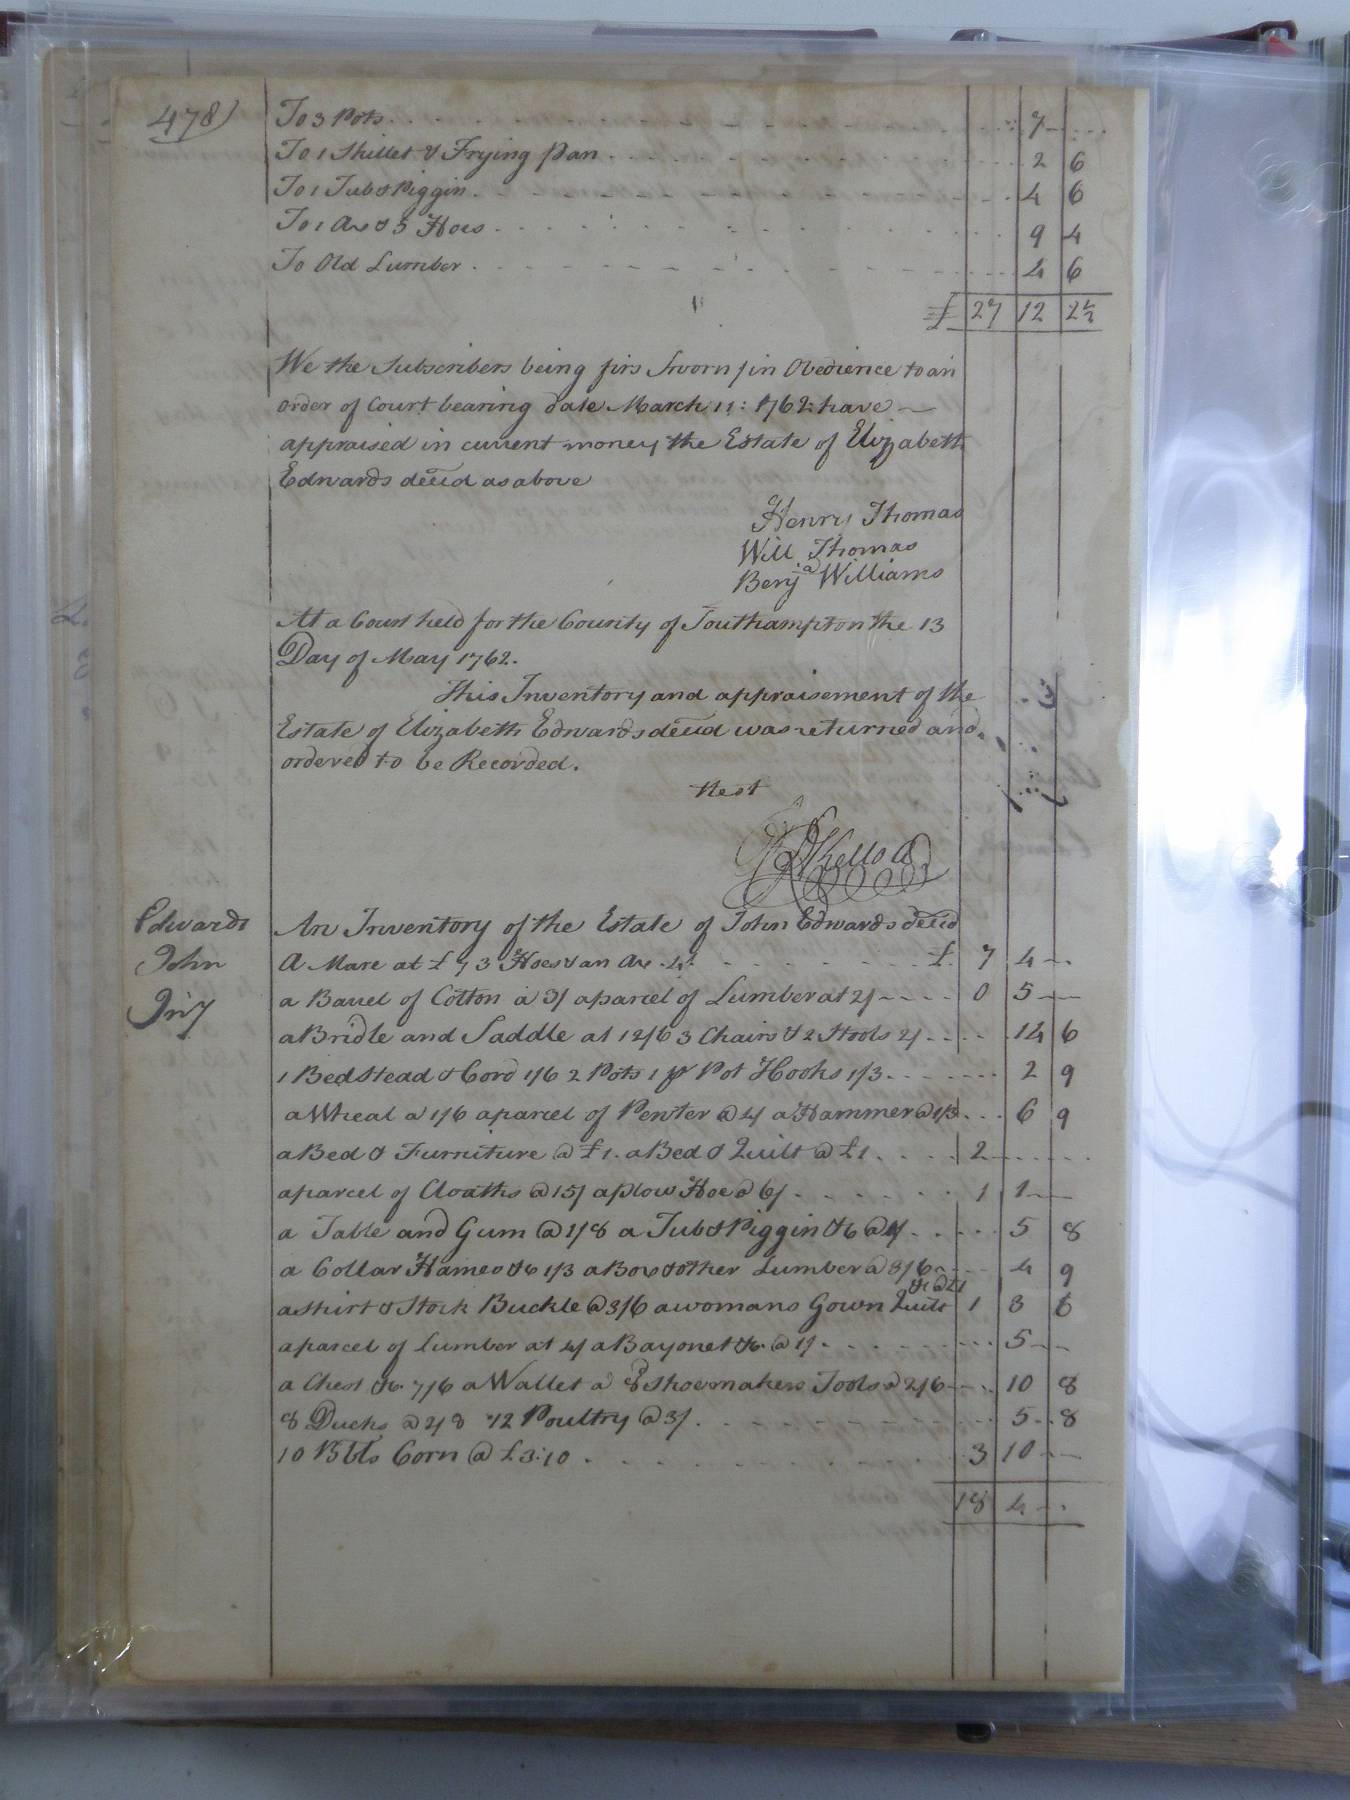 478)
To 3 Pots 7
To 1 Skillet & Frying pan 2 6
To 1 Tub & Piggin 4 6
To 1 Ax & 5 Hoes 9 4
To Old Lumber 4 6
£ 27 12 2½
We the Subscribers being firs Sworn in Obedience to an
order of Court bearing date March 11: 1762 have
appraised in current money the Estate of Elizabeth
Edwards deced as above
Henry Thomas
Will Thomas
Benja Williams
At a Court held for the County of Southampton the 13
Day of May 1762.
This Inventory and appraisement of the
Estate of Elizabeth Edwards deced was returned and
ordered to be Recorded.
Test
R Kello
Edwards
John
Invy
An Inventory of the Estate of John Edwards deced
A Mare at £7 3 Hoes & an Ax 4/ £ 7 4
a Barrel of Cotton a 3/ a parcel of Lumber at 2/ 0 5
a Bridle and Saddle at 12/6 3 Chairs & 2 Stools 2/ 14 6
1 Bedstead & Cord 1/6 2 Pots 1 pr Pot Hooks 1/3 2 9
a Wheal a 1/6 a parcel of Pewter @ 4/ a Hammer @ 1/3 6 9
a Bed & Furniture @ £1. a Bed & Quilt @ £1 2
a parcel of Cloaths @ 15/ a plow Hoe @ 6/ 1 1
a Table and Gum @ 1/8 a Tub & Piggin &c @ 4/ 5 8
a Collar Hames &c 1/3 a Box & other Lumber @ 3/6 4 9
&c @ £1
a shirt & Stock Buckle @ 3/6 a womans Gown Quilt 1 3 6
a parcel of Lumber at 4/ a Bayonet &c. @ 1/ 5
a Chest &c. 7/6 a Wallet a 8 Shoemakers Tools @ 2/6 10 8
8 Ducks @ 2/8 12 Poultry @ 3/ 5 8
10 Bbls Corn @ £3:10 3 10
18 4